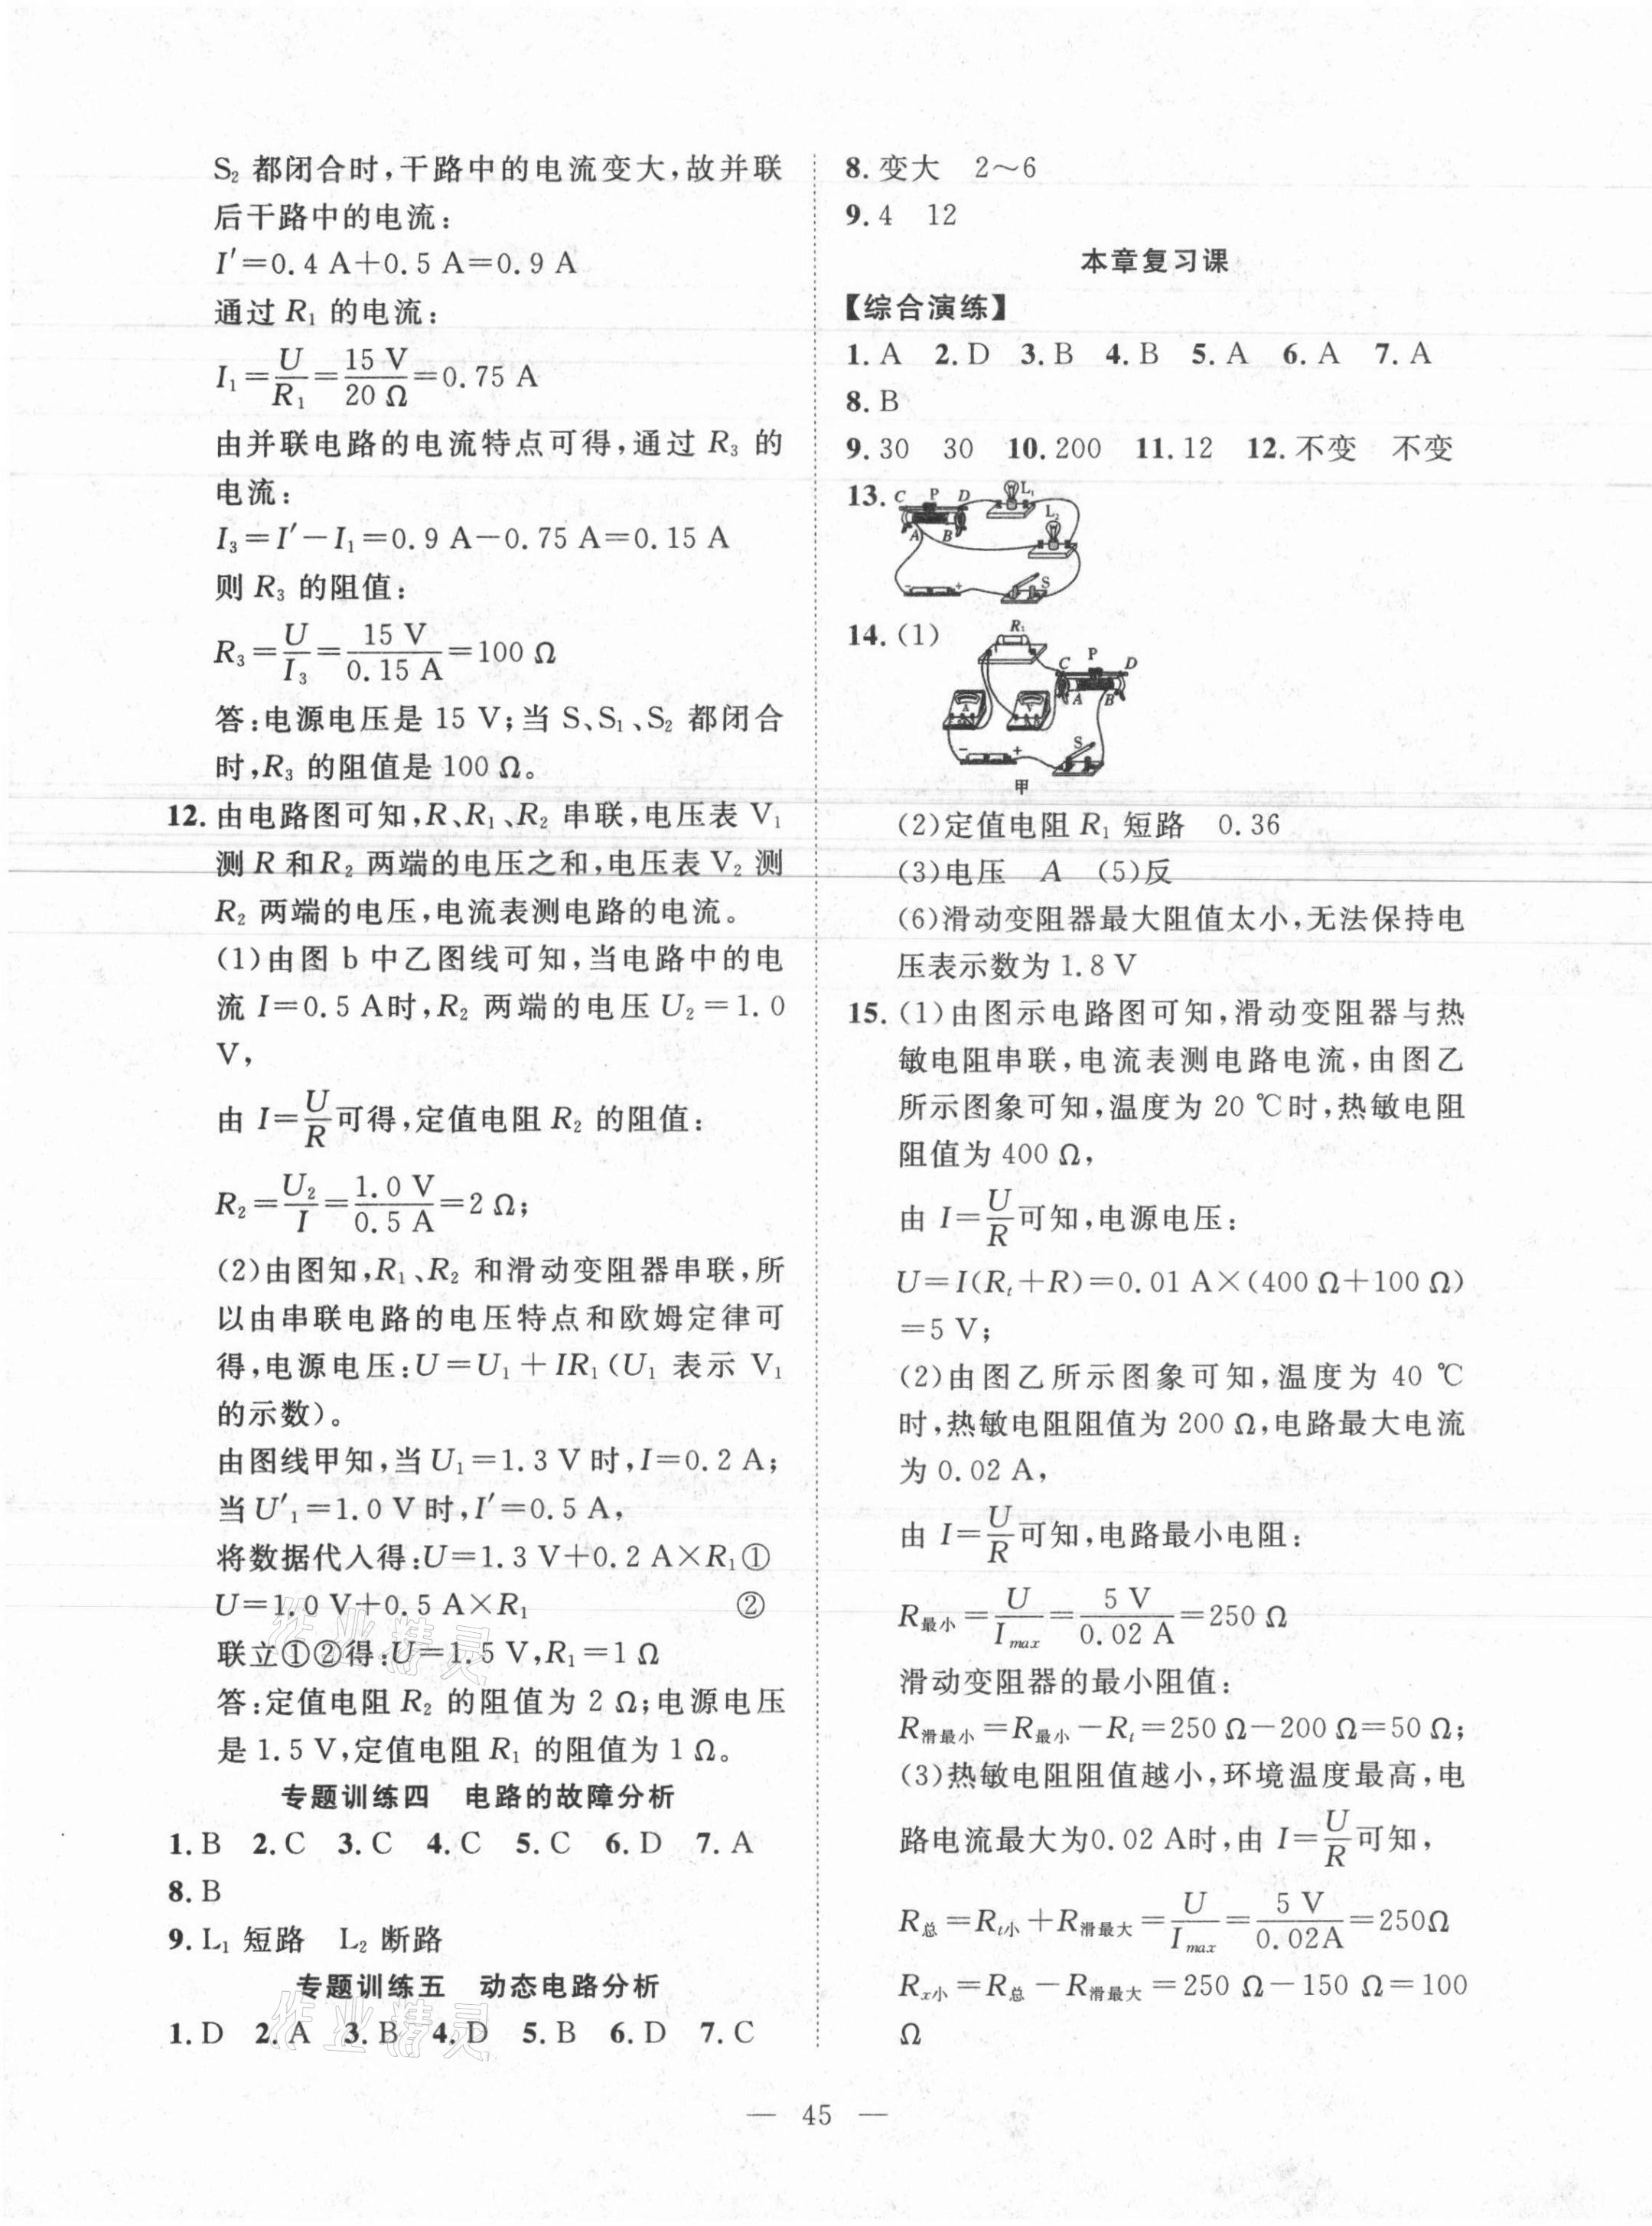 S₂ 都闭合时,干路中的电流变大,故并联
后干路中的电流:
I′=0.4 A+0.5 A=0.9 A
通过 R₁ 的电流:
I₁=U/R₁=15 V/20 Ω=0.75 A
由并联电路的电流特点可得,通过 R₃ 的
电流:
I₃=I′-I₁=0.9 A-0.75 A=0.15 A
则 R₃ 的阻值:
R₃=U/I₃=15 V/0.15 A=100 Ω
答:电源电压是 15 V;当 S、S₁、S₂ 都闭合
时,R₃ 的阻值是 100 Ω。
12. 由电路图可知,R、R₁、R₂ 串联,电压表 V₁
测 R 和 R₂ 两端的电压之和,电压表 V₂ 测
R₂ 两端的电压,电流表测电路的电流。
(1)由图 b 中乙图线可知,当电路中的电
流 I=0.5 A时,R₂ 两端的电压 U₂=1.0
V,
由 I=U/R可得,定值电阻 R₂ 的阻值:
R₂=U₂/I=1.0 V/0.5 A=2 Ω;
(2)由图知,R₁、R₂ 和滑动变阻器串联,所
以由串联电路的电压特点和欧姆定律可
得,电源电压:U=U₁+IR₁(U₁ 表示 V₁
的示数)。
由图线甲知,当 U₁=1.3 V 时,I=0.2 A;
当 U′₁=1.0 V 时,I′=0.5 A,
将数据代入得:U=1.3 V+0.2 A×R₁①
U=1.0 V+0.5 A×R₁ ②
联立①②得:U=1.5 V,R₁=1 Ω
答:定值电阻 R₂ 的阻值为 2 Ω;电源电压
是 1.5 V,定值电阻 R₁ 的阻值为 1 Ω。
专题训练四 电路的故障分析
1. B 2. C 3. C 4. C 5. C 6. D 7. A
8. B
9. L₁ 短路 L₂ 断路
专题训练五 动态电路分析
1. D 2. A 3. B 4. D 5. B 6. D 7. C
8. 变大 2~6
9. 4 12
本章复习课
【综合演练】
1. A 2. D 3. B 4. B 5. A 6. A 7. A
8. B
9. 30 30 10. 200 11. 12 12. 不变 不变
13.
C P D L₁
L₂
A B
- + S
14. (1)
R₁
C P D
A B
A V
- + S
甲
(2)定值电阻 R₁ 短路 0.36
(3)电压 A (5)反
(6)滑动变阻器最大阻值太小,无法保持电
压表示数为 1.8 V
15. (1)由图示电路图可知,滑动变阻器与热
敏电阻串联,电流表测电路电流,由图乙
所示图象可知,温度为 20 ℃时,热敏电阻
阻值为 400 Ω,
由 I=U/R可知,电源电压:
U=I(Rₜ+R)=0.01 A×(400 Ω+100 Ω)
=5 V;
(2)由图乙所示图象可知,温度为 40 ℃
时,热敏电阻阻值为 200 Ω,电路最大电流
为 0.02 A,
由 I=U/R可知,电路最小电阻:
R最小=U/Imax=5 V/0.02 A=250 Ω
滑动变阻器的最小阻值:
R滑最小=R最小-Rₜ=250 Ω-200 Ω=50 Ω;
(3)热敏电阻阻值越小,环境温度最高,电
路电流最大为0.02 A时,由 I=U/R可知,
R总=Rt小+R滑最大=U/Imax=5 V/0.02A=250Ω
Rx小=R总-R滑最大=250 Ω-150 Ω=100
Ω
作业精灵
作业精灵
— 45 —